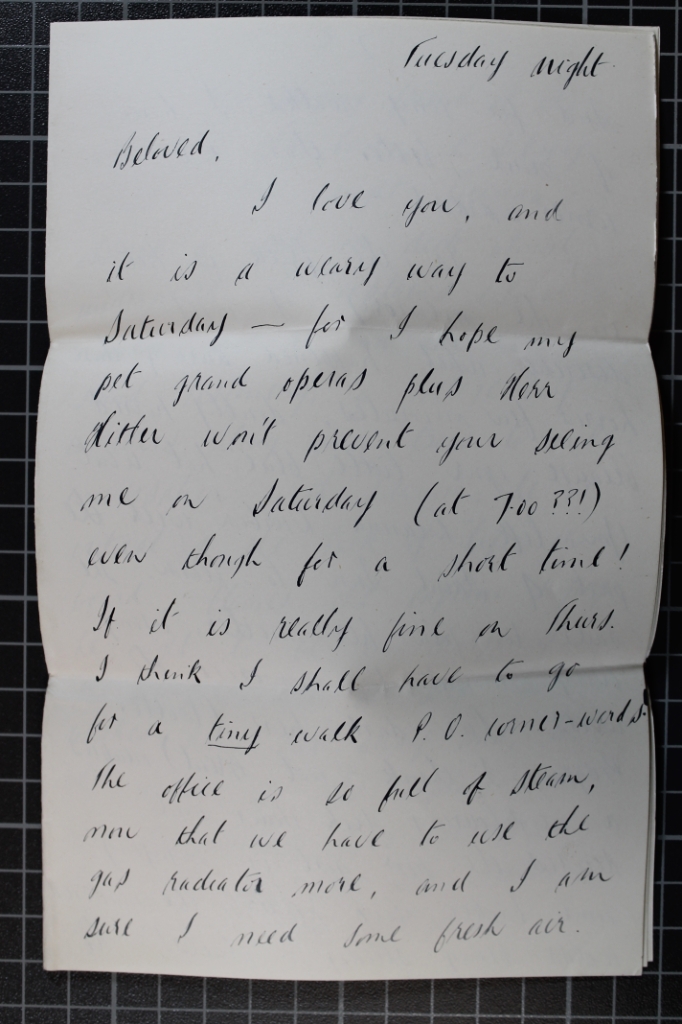 Tuesday night.
Beloved,
I love you, and
it is a weary way to
Saturday — for I hope my
pet grand operas plus Herr
Hitler won't prevent your seeing
me on Saturday (at 7.00??!)
even though for a short time!
If it is really fine on Thurs.
I think I shall have to go
for a tiny walk P.O. corner-wards.
The office is so full of steam,
now that we have to use the
gas radiator more, and I am
sure I need some fresh air.